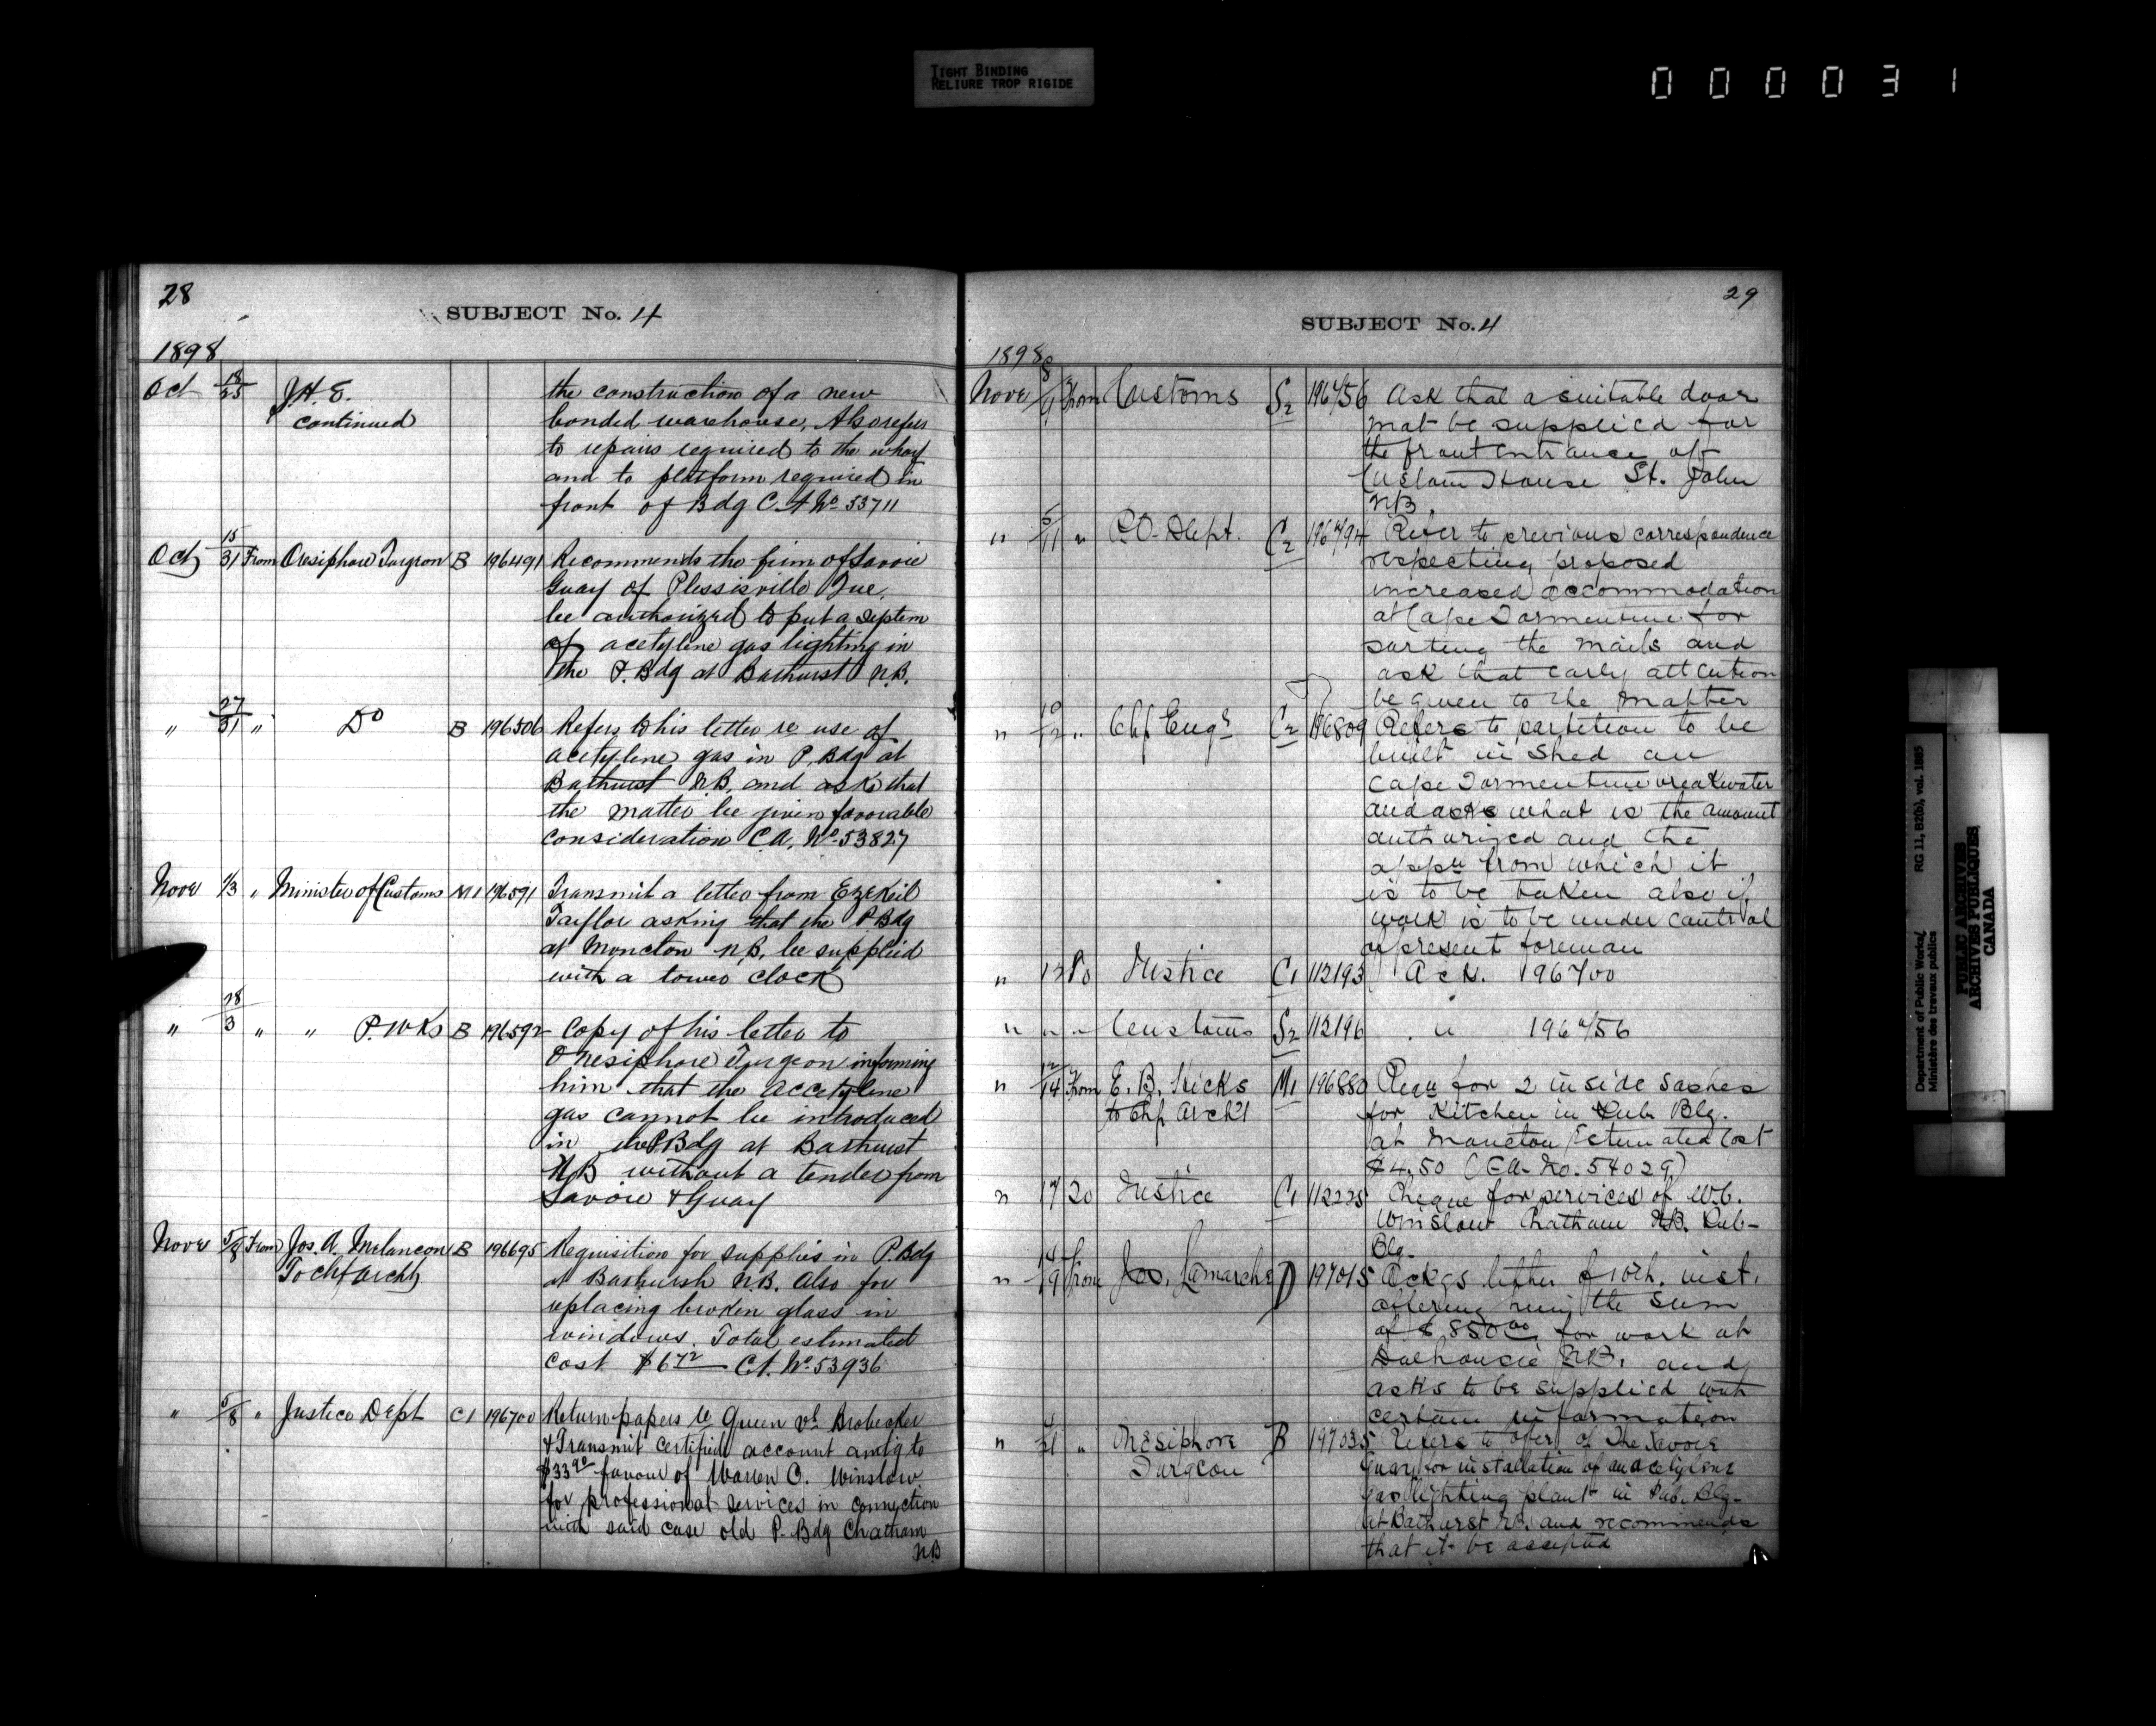 TIGHT BINDING
RELIURE TROP RIGIDE
000031
28
SUBJECT No. 4
1898
Oct 18/25 J.H.E. continued
the construction of a new
bonded warehouse, Also refers
to repairs required to the wharf
and to platform required in
front of Bdg C.A No 53711
Oct 15/31 From Onesiphore Turgeon B 196491 Recommends the firm of Savoie
Guay of Plessisville Que,
be authorized to put a system
of acetyline gas lighting in
the P. Bdg at Bathurst N.B.
" 27/31 " Do B 196506 Refers to his letter re use of
acetyline gas in P. Bdg at
Bathurst N.B. and asks that
the matter be given favorable
consideration C.A. No 53827
Novr 1/3 " Minister of Customs M1 196591 Transmit a letter from Ezekiel
Taylor asking that the P Bdg
at Moncton N.B. be supplied
with a tower clock
" 28/3 " " P. WKs B 196592 Copy of his letter to
Onesiphore Turgeon informing
him that the accetyline
gas cannot be introduced
in the P Bdg at Bathurst
NB without a tender from
Savoie & Guay
Novr 5/8 From Jos. A. Melancon B 196695 Requisition for supplies in P. Bdg
To Chf Archt
at Bathursh N.B. also for
replacing broken glass in
windows. Total estimated
cost $6 72 C.A. No 53936
" 5/8 " Justice Dept C1 196700 Return papers re Queen vs Brobecker
& Transmit certified account amtg to
$33 90 favour of Warren C. Winslow
for professional services in connection
with said case old P. Bdg Chatham
N.B
29
SUBJECT No. 4
1898
Novr 8/9 From Customs S2 196756 Ask that a suitable door
mat be supplied for
the front entrance of
Custom House St. John
NB.
" 5/11 " P.O. Dept. C2 196794 Refer to previous correspondence
respecting proposed
increased accommodation
at Cape Tormentine for
sorting the mails and
ask that early attention
be given to the matter
" 10/12 " Chf Engr C2 196809 Refers to partition to be
built in Shed on
Cape Tormentine breakwater
and asks what is the amount
authorized and the
appn from which it
is to be taken also if
work is to be under control
of present foreman
" 12 To Justice C1 112193 Ack. 196700
" " " Customs S2 112196 " 196756
" 12/14 From E. B. Hicks M1 196880 Reqn for 2 inside sashes
to Chf Archt
for Kitchen in Pub. Blg.
at Moncton Estimated Cost
$4.50 (C.A. No. 54029)
" 17 20 Justice C1 112225 Cheque for services of W.C.
Winslow Chatham NB. Pub-
Blg.
" 14/19 From Jos. Lamarche D 197015 Ackgs letter of 10th. inst.
offering him the sum
of $850 00 for work at
Dalhousie N.B. and
asks to be supplied with
certain information
" /21 " Onesiphore B 197035 Refers to offer of The Savoie
Turgeon
Guay for installation of an acetylene
gas lighting plant in Pub. Blg.
at Bathurst N.B. and recommends
that it be accepted
Department of Public Works/ RG 11, B2(b), vol. 1885
Ministère des travaux publics
PUBLIC ARCHIVES
ARCHIVES PUBLIQUES
CANADA